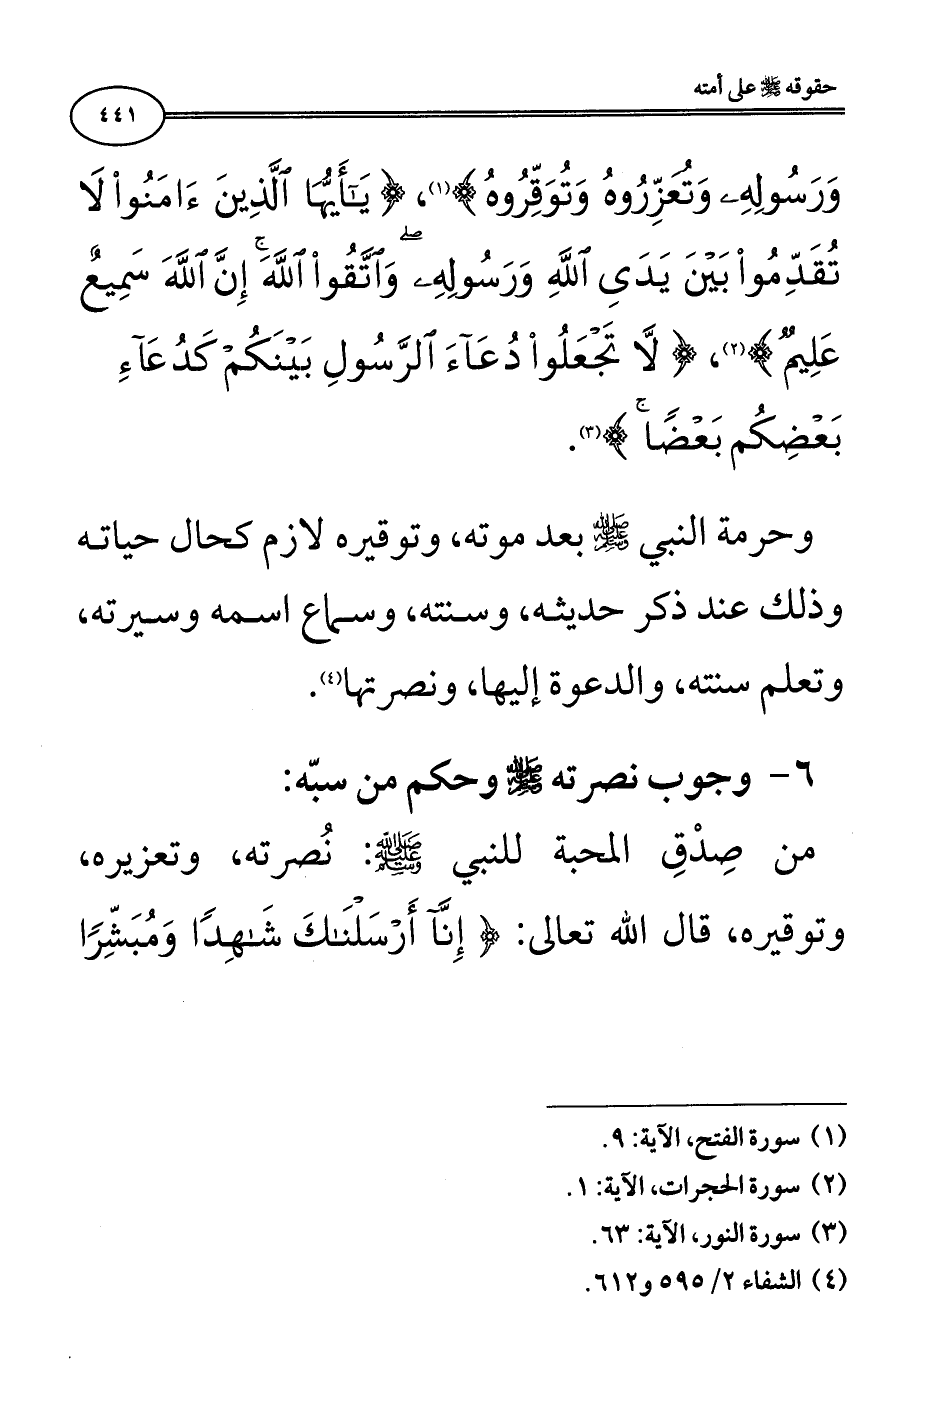 حقوقه ﷺ على أمته
٤٤١
وَرَسُولِهِۦ وَتُعَزِّرُوهُ وَتُوَقِّرُوهُ ﴾(١)، ﴿ يَـٰٓأَيُّهَا ٱلَّذِينَ ءَامَنُوا۟ لَا
تُقَدِّمُوا۟ بَيْنَ يَدَىِ ٱللَّهِ وَرَسُولِهِۦ ۖ وَٱتَّقُوا۟ ٱللَّهَ ۚ إِنَّ ٱللَّهَ سَمِيعٌ
عَلِيمٌ ﴾(٢)، ﴿ لَّا تَجْعَلُوا۟ دُعَآءَ ٱلرَّسُولِ بَيْنَكُمْ كَدُعَآءِ
بَعْضِكُم بَعْضًا ۚ ﴾(٣).
وحرمة النبي ﷺ بعد موته، وتوقيره لازم كحال حياته
وذلك عند ذكر حديثه، وسنته، وسماع اسمه وسيرته،
وتعلم سنته، والدعوة إليها، ونصرتها(٤).
٦- وجوب نصرته ﷺ وحكم من سبّه:
من صِدْقِ المحبة للنبي ﷺ: نُصرته، وتعزيره،
وتوقيره، قال الله تعالى: ﴿ إِنَّآ أَرْسَلْنَـٰكَ شَـٰهِدًا وَمُبَشِّرًا
(١) سورة الفتح، الآية: ٩.
(٢) سورة الحجرات، الآية: ١.
(٣) سورة النور، الآية: ٦٣.
(٤) الشفاء ٢/ ٥٩٥ و٦١٢.